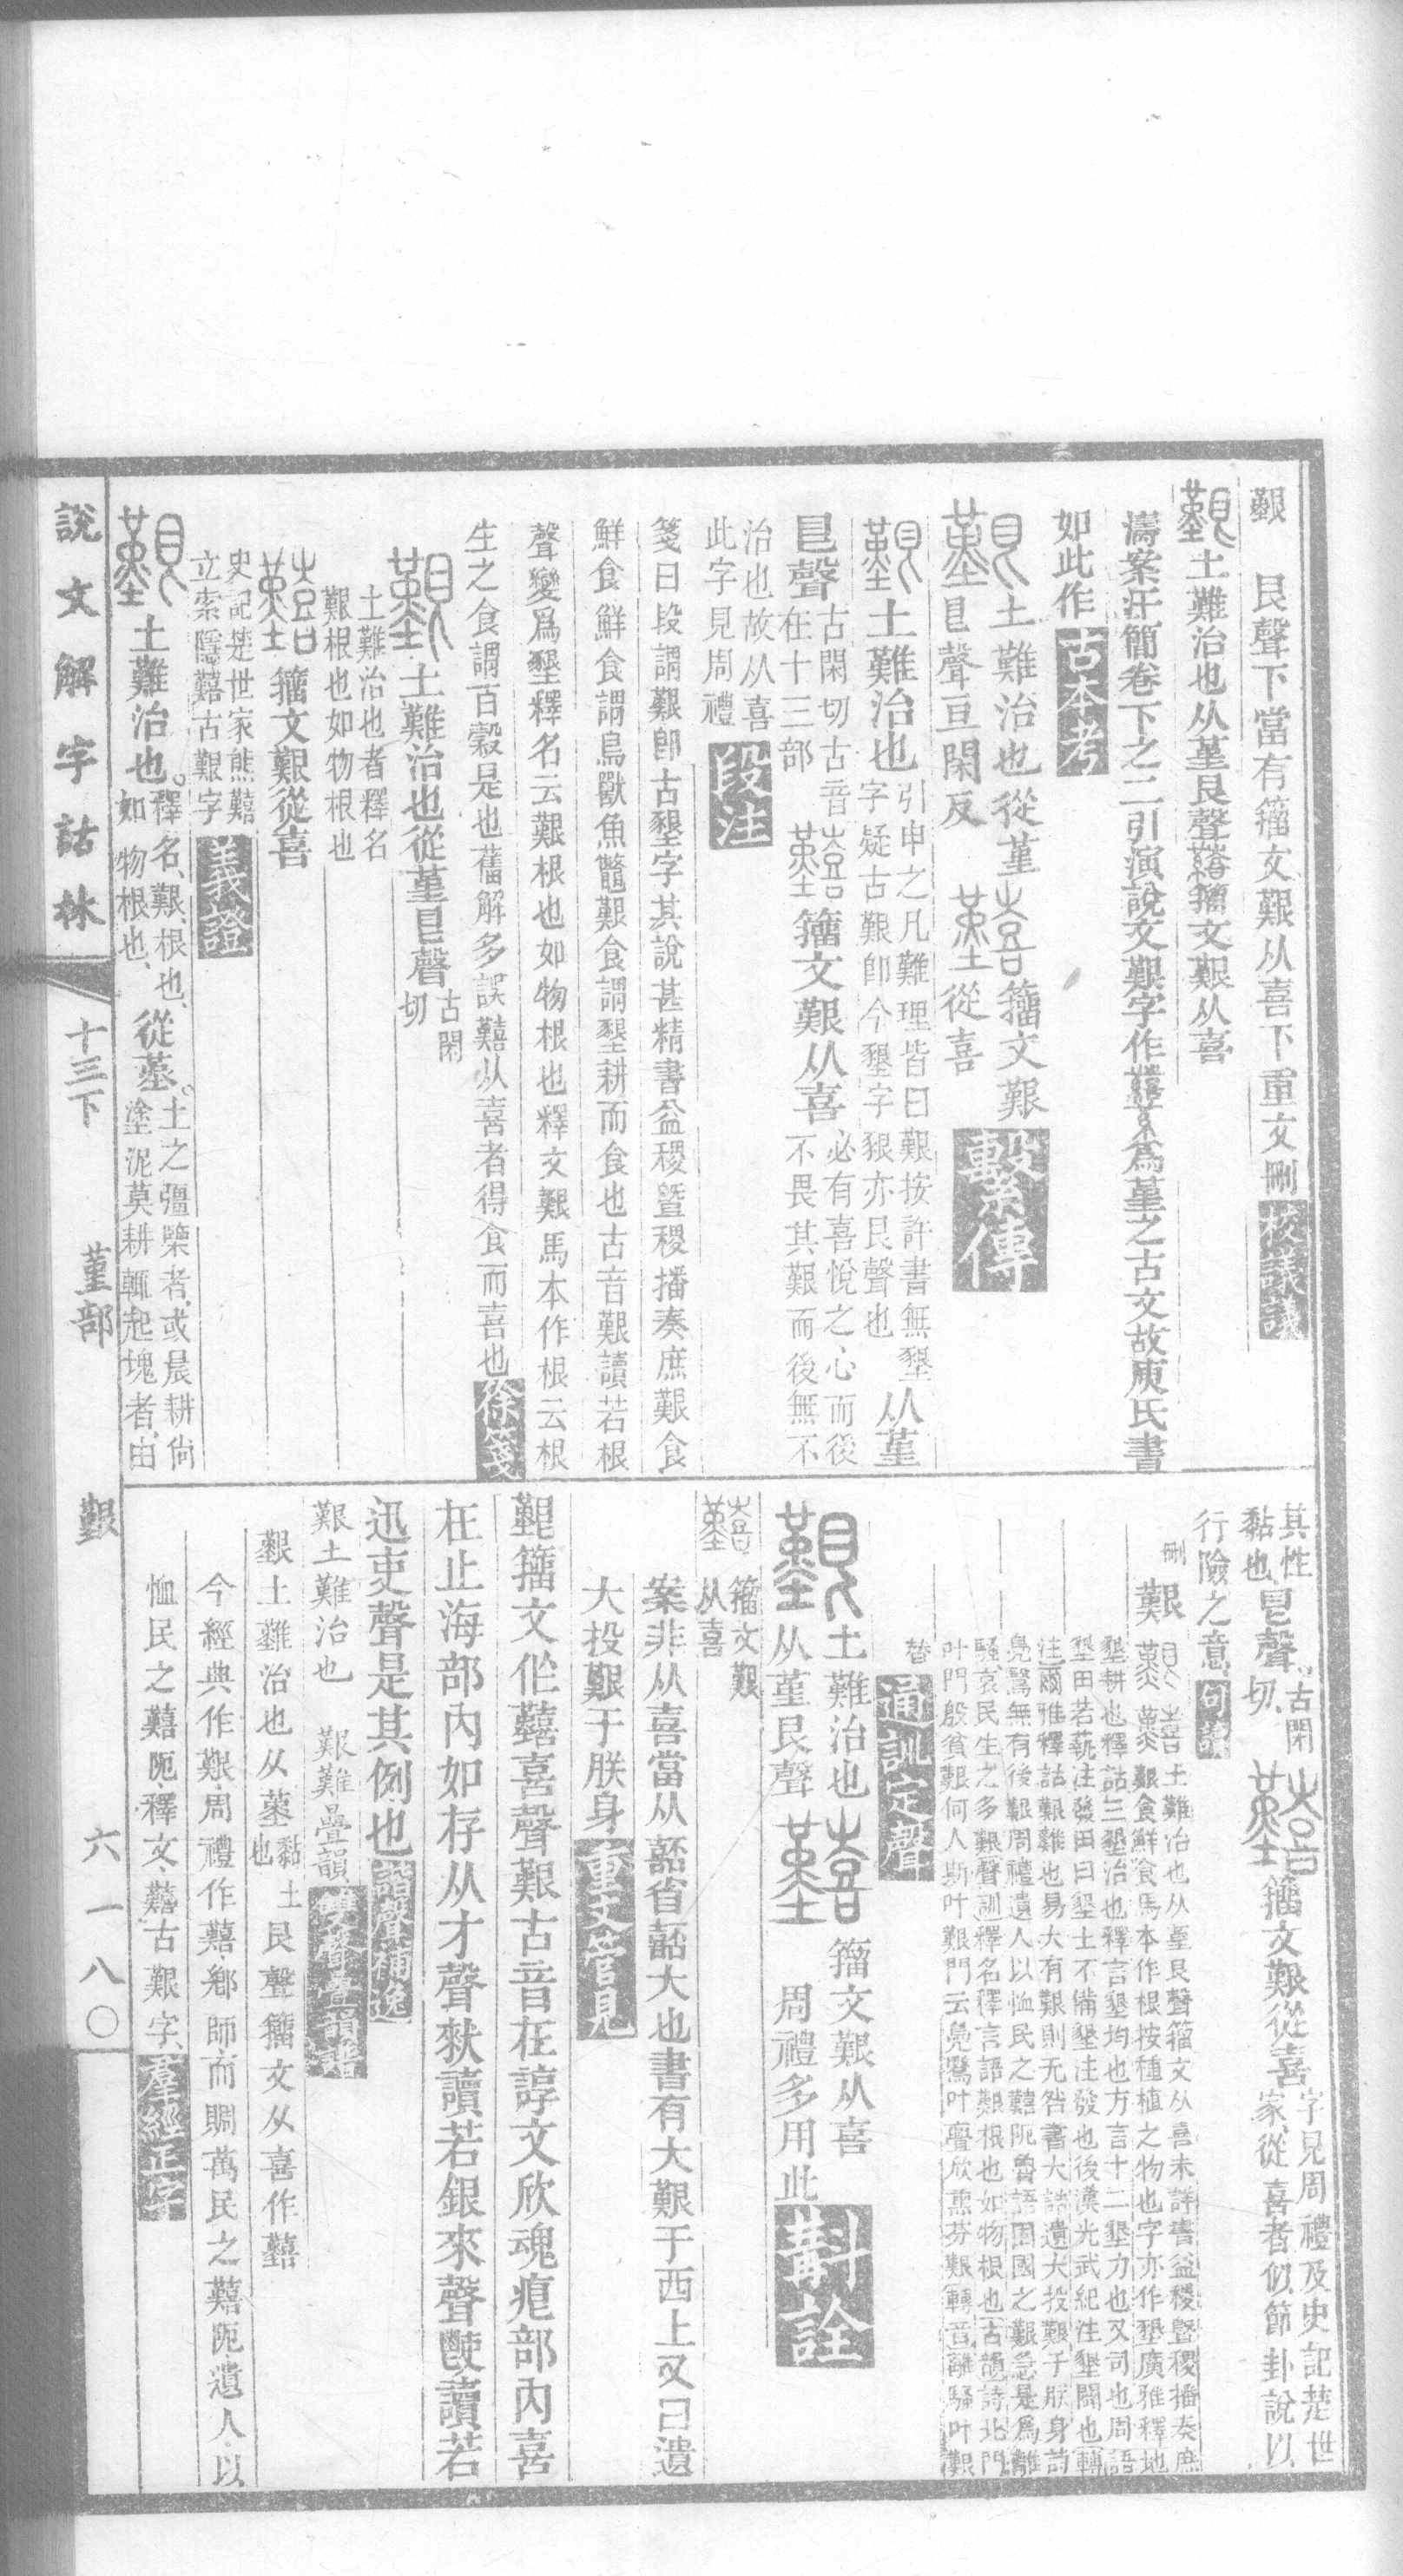 艱　艮聲下當有籒文艱从喜下重文刪校議議
艱土難治也从堇艮聲囏籒文艱从喜
濤案汗簡卷下之二引演說文艱字作𦰩葢以𦰩為堇之古文故庾氏書
如此作古本考
艱土難治也從堇
皀聲亘閑反
囏籒文艱
從喜
繫傳
艱土難治也
引申之凡難理皆曰艱按許書無墾
字疑古艱卽今墾字狠亦艮聲也
从堇
皀聲
古閑切古音
在十三部
囏籒文艱从喜
必有喜悅之心而後
不畏其艱而後無不
治也故从喜
此字見周禮
段注
箋曰段謂艱卽古墾字其說甚精書益稷暨稷播奏庶艱食
鮮食鮮食謂鳥獸魚鼈艱食謂墾耕而食也古音艱讀若根
聲變爲墾釋名云艱根也如物根也釋文艱馬本作根云根
生之食謂百穀是也舊解多誤囏从喜者得食而喜也徐箋
艱土難治也從堇皀聲
古閑
切
土難治也者釋名
艱根也如物根也
囏籒文艱從喜
史記楚世家熊囏
立索隱囏古艱字
義證
艱土難治也。
釋名、艱、根也、
如物根也、
從堇。
土之彊㯺者、或晨耕尙
塗泥、莫耕輒起塊者、由
其性
黏也、
皀聲。
古閑
切、
囏籒文艱從喜
字見周禮及史記楚世
家、從喜者、似節卦說以
行險之意、
句讀
艱 囏 土難治也从堇艮聲籒文从喜未詳書益稷暨稷播奏庶
艱食鮮食馬本作根按種植之物也字亦作墾廣雅釋地
墾耕也釋詁三墾治也釋言墾均也方言十二墾力也又司也周語
墾田若蓺注發田曰墾土不備墾注發也後漢光武紀注墾闢也轉
注爾雅釋詁艱難也易大有艱則无咎書大誥遺大投艱于朕身詩
鳧鷖無有後艱周禮遺人以恤民之囏阨魯語固國之艱急是爲離
騷哀民生之多艱聲訓釋名釋言語艱根也如物根也古韻詩北門
叶門殷貧艱何人斯叶艱門云鳧鷖叶亹欣熏芬艱轉音離騷叶艱
替通訓定聲
艱土難治也
从堇艮聲
囏籒文艱从喜
周禮多用此
斠詮
囏籒文艱
从喜
案非从喜當从嚭省嚭大也書有大艱于西土又曰遺
大投艱于朕身重文管見
艱籒文作囏喜聲艱古音在諄文欣魂痕部內喜
在止海部內如存从才聲猌讀若銀來聲䮕讀若
迅吏聲是其例也諧聲補逸
艱土難治也　艱難疊韻雙聲疊韻譜
艱土難治也从堇
黏土
也
艮聲籒文从喜作囏
今經典作艱周禮作囏、鄕師、而賙萬民之囏阨、遺人、以
恤民之囏阨、釋文、囏古艱字、羣經正字
說文解字詁林
十三下　堇部　艱
六一八〇